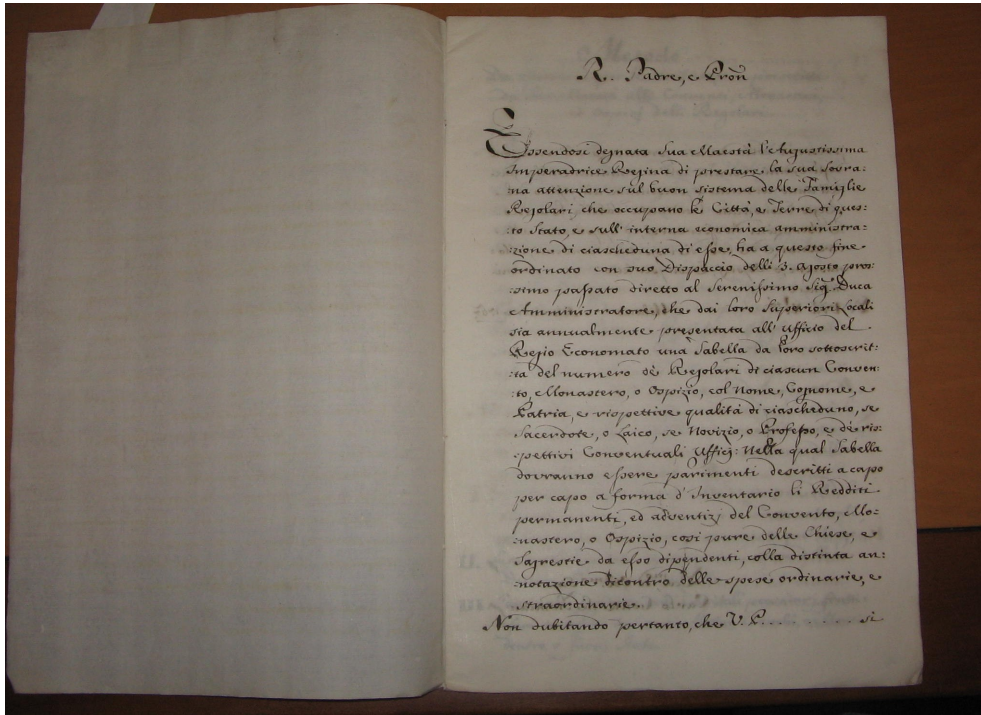 R. Padre, e Pron̄
Essendosi degnata Sua Maestà l'Augustissima
Imperadrice Regina di prestare la sua sovra:
:na attenzione sul buon sistema delle Famiglie
Regolari, che occupano le Città, e Terre di ques:
:to Stato, e sull' interna economica amministra:
:zione di ciascheduna di esse, ha a questo fine
ordinato con suo Dispaccio delli 3. Agosto pros:
:simo passato diretto al Serenissimo Sig.r Duca
Amministratore, che dai loro Superiori Locali
sia annualmente presentata all' Uffizio del
Regio Economato una Tabella da loro sottoscrit:
:ta del numero de' Regolari di ciascun Conven:
:to, Monastero, o Ospizio, col Nome, Cognome, e
Patria, e rispettive qualità di ciascheduno, se
Sacerdote, o Laico, se Novizio, o Professo, e de' ris:
:pettivi Conventuali Uffizj: Nella qual Tabella
dovranno essere parimenti descritti a capo
per capo a forma d' Inventario li Redditi
permanenti, ed adventizj del Convento, Mo:
:nastero, o Ospizio, così pure delle Chiese, e
Sagrestie da esso dipendenti, colla distinta an:
:notazione dicontro delle spese ordinarie, e
straordinarie.
Non dubitando pertanto, che V. P. . . . . . . . . . si